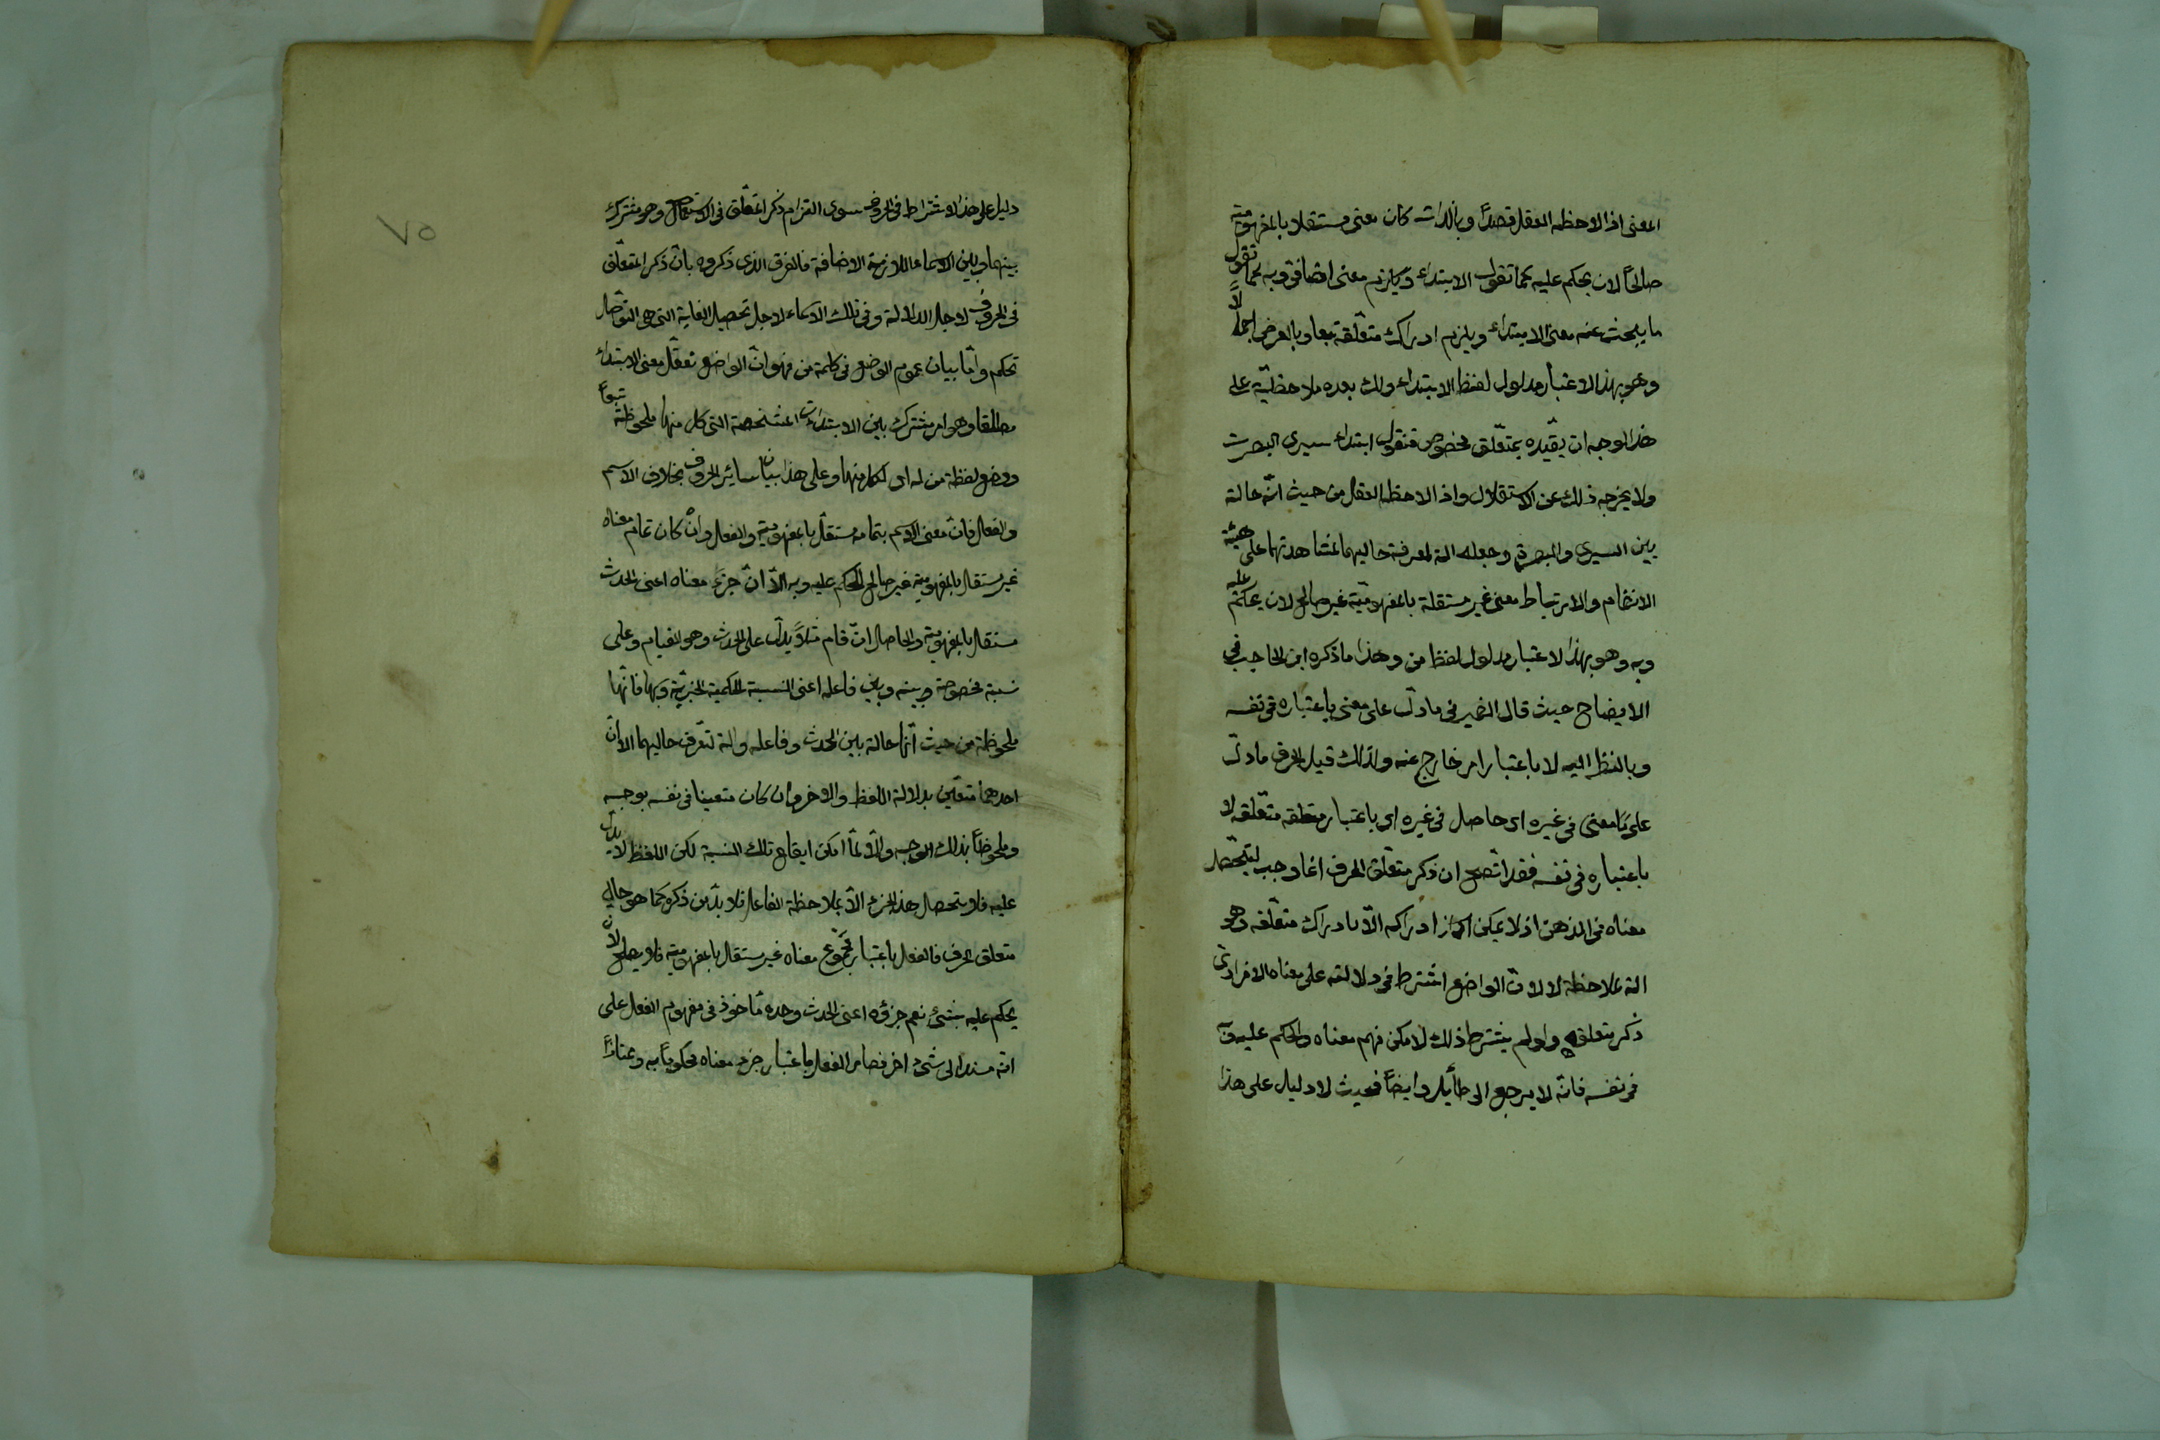 المعنى اذا لاحظه العقل قصداً وبالذات كان معنى مستقلا بالمفهومية
صالحاً لان يحكم عليه كما تقول الابتداء معنى اضافى وبه كما تقول
ما يبحث عنه معنى الابتداء ويلزم ادراك متعلقه تبعا وبالعرض اجمالاً
وهو بهذا الاعتبار مدلول لفظ الابتداء ولك بعده ملاحظته على
هذا الوجه ان يقيّده بمتعلّق مخصوص فتقول ابتداء سيرى البصرت
ولا يخرجه ذلك عن الاستقلال واذا لاحظه العقل من حيث انّه حالة
بين السير والبصرة وجعله الة لمعرفة حاليهما مشاهدتهما على هيئة
الانضمام والارتباط معنى غير مستقلة بالمفهوميّة غير صالح لان يحكم عليه
وبه وهو بهذا لاعتبار مدلول لفظ من وهذا ما ذكره ابن الحاجب فى
الايضاح حيث قال الضمير فى ما دلّ على معنى باعتباره فى نفسه
وبالنظر اليه لا باعتبار امر خارج عنه ولذلك قيل الحرف ما دلّ
على معنى فى غيره اى حاصل فى غيره اى باعتبار متعلقه لا
باعتباره فى نفسه فقد اتّضح ان ذكر متعلّق الحرف انما وجب ليتحصّل
معناه فى الذهن اذ لا يمكن ادراكه الّا بادراك متعلّقه وهو
الة لملاحظة لا لانّ الواضع اشترط فى دلالته على معناه الافرادى
ذكر متعلقه ولو لم يشترط ذلك لامكن فهم معناه والحكم عليه وبه
فى نفسه فانّه لا يرجع الى طائل وايضاً فحيث لا دليل على هذا
٧٥
دليل على هذا الاشتراط فى الحروف سوى التزام ذكر المتعلّق فى الاستعمال وهو مشترك
بينهما وبين الاسماء اللازمة الاضافة فالفرق الذى ذكروه بانّ ذكر المتعلّق
فى الحروف لاجل الدلالة وفى تلك الاسماء لاجل تحصيل الغاية التى هى التوصّل
تحكم وامّا بيان عموم الوضع فى كلمة من فهو انّ الواضع تعقّل معنى الابتداء
مطلقا وهو امر مشترك بين الابتدات المشخصة التى كل منها ملحوظة تبعاً
ووضع لفظة من له اى لكل منها وعلى هذا بيان سائر الحروف بخلاف الاسم
والفعل فانّ معنى الاسم بتمامه مستقلّ بالمفهوميّة والفعل وان كان تمام معناه
غير مستقل بالمفهومية غير صالح للحكم عليه وبه الّا انّ جزء معناه اعنى الحدث
مستقل بالمفهوميّة والحاصل انّ قام مثلاً يدلّ على الحدث وهو القيام وعلى
نسبة مخصوصة بينه وبين فاعله اعنى النسبة الحكمية الخبريّة وبها فانّها
ملحوظة من حيث انّها حالة بين الحدث وفاعله والة لتعرّف حاليهما الا انّ
احدهما متعيّن بدلالة اللفظ والاخر وان كان متعينا فى نفسه بوجه
وملحوظاً بذلك الوجه والّا لما امكن ايقاع تلك النسبة لكن اللفظ لا يدلّ
عليه فلا يتحصل هذا الجزء الّا بملاحظة الفاعل فلا بدّ من ذكره كما هو حال
متعلق الحرف فالفعل باعتبار مجموع معناه غير مستقل بالمفهوميّة فلا يصلح لان
يحكم عليه بشئ نعم جزؤه اعنى الحدث وحده مأخوذ فى مفهوم الفعل على
انّه مسند الى شئ اخر فصار الفعل باعتبار جزء معناه محكوماً به وممتازاً